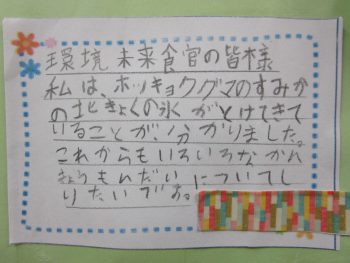 環境未来食官の皆様
私は、ホッキョクグマのすみか
の北きょくの氷がとけてきて
いることが、分かりました。
これからもいろいろなかん
きょうもんだいについてし
りたいです。